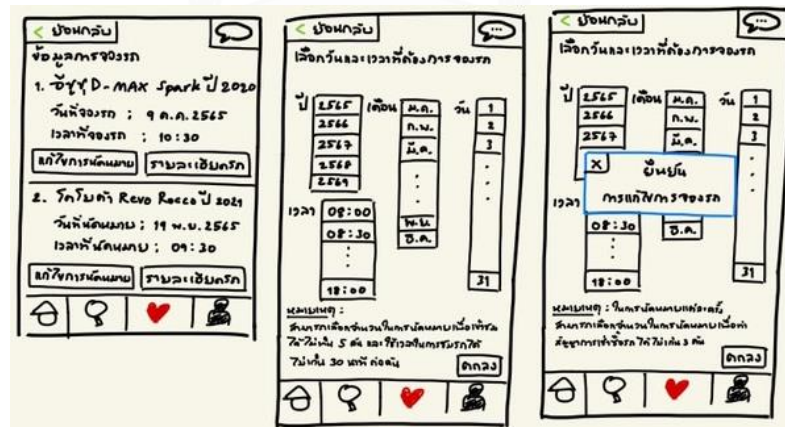 < ย้อนกลับ
ข้อมูลการจองรถ
1. อีซูซุ D-MAX Spark ปี 2020
วันที่จองรถ ; 9 ต.ค. 2565
เวลาที่จองรถ : 10:30
แก้ไขการนัดหมาย
รายละเอียดรถ
2. โตโยต้า Revo Rocco ปี 2021
วันที่นัดหมาย ; 19 พ.ย. 2565
เวลาที่นัดหมาย ; 09:30
แก้ไขการนัดหมาย
รายละเอียดรถ
< ย้อนกลับ
เลือกวันและเวลาที่ต้องการจองรถ
ปี
2565
2566
2567
2568
2569
เดือน
ม.ค.
ก.พ.
มี.ค.
พ.ย.
ธ.ค.
วัน
1
2
3
31
เวลา
08:00
08:30
18:00
หมายเหตุ :
สามารถเลือกจำนวนในการนัดหมายเพื่อเข้าชม
ได้ไม่เกิน 5 คัน และใช้เวลาในการชมรถได้
ไม่เกิน 30 นาที ต่อคัน
ตกลง
< ย้อนกลับ
เลือกวันและเวลาที่ต้องการจองรถ
ปี
2565
2566
2567
เดือน
ม.ค.
ก.พ.
มี.ค.
ธ.ค.
วัน
1
2
3
31
X
ยืนยัน
การแก้ไขการจองรถ
เวลา
08:30
18:00
หมายเหตุ : ในการนัดหมายแต่ละครั้ง
สามารถเลือกจำนวนในการนัดหมายเพื่อทำ
สัญญาการเช่าซื้อรถ ได้ไม่เกิน 3 คัน
ตกลง